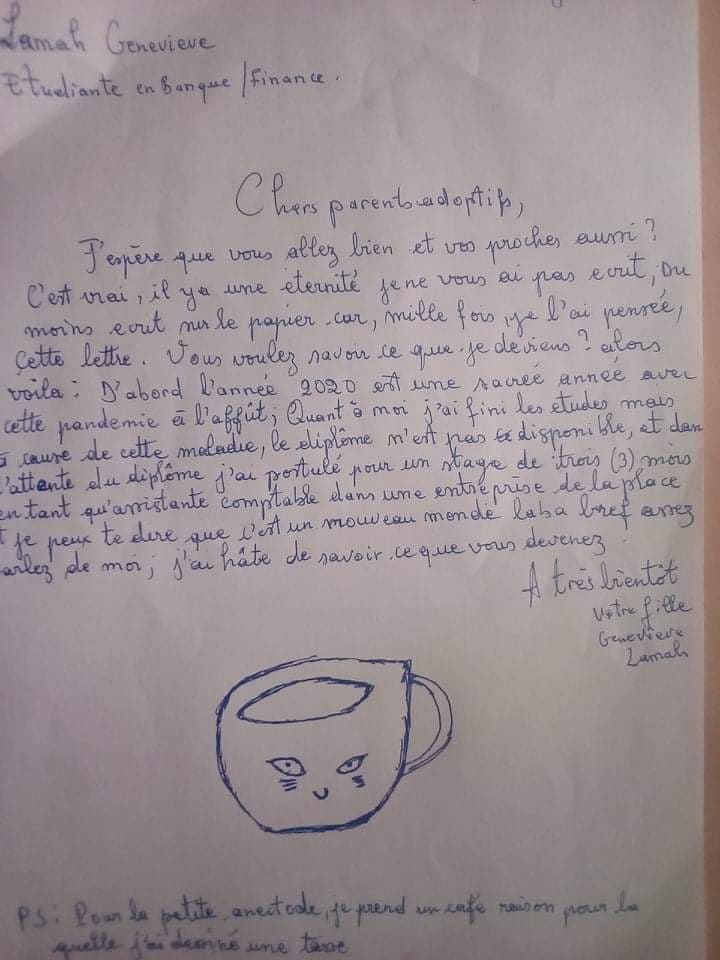 Lamah Genevieve
Etudiante en Banque/Finance.
Chers parents adoptifs,
J'espère que vous allez bien et vos proches aussi?
C'est vrai, il ya une éternité je ne vous ai pas ecrit, Du
moins ecrit sur le papier car, mille fois, je l'ai pensée,
cette lettre. Vous voulez savoir ce que je deviens? alors
voila: D'abord l'année 2020 est une sacreé année avec
cette pandemie à l'affût; Quant à moi j'ai fini les etudes mais
à cause de cette maladie, le diplôme n'est pas disponible, et dan
l'attente du diplôme j'ai postulé pour un stage de trois (3) mois
en tant qu'assistante comptable dans une entreprise de la place
t je peux te dire que c'est un nouveau monde laba bref assez
arlez de moi; j'ai hâte de savoir ce que vous devenez.
A très bientôt
votre fille
Genevieve
Lamah
PS: Pour la petite anectode, je prend un café raison pour la
quelle j'ai dessiné une tasse